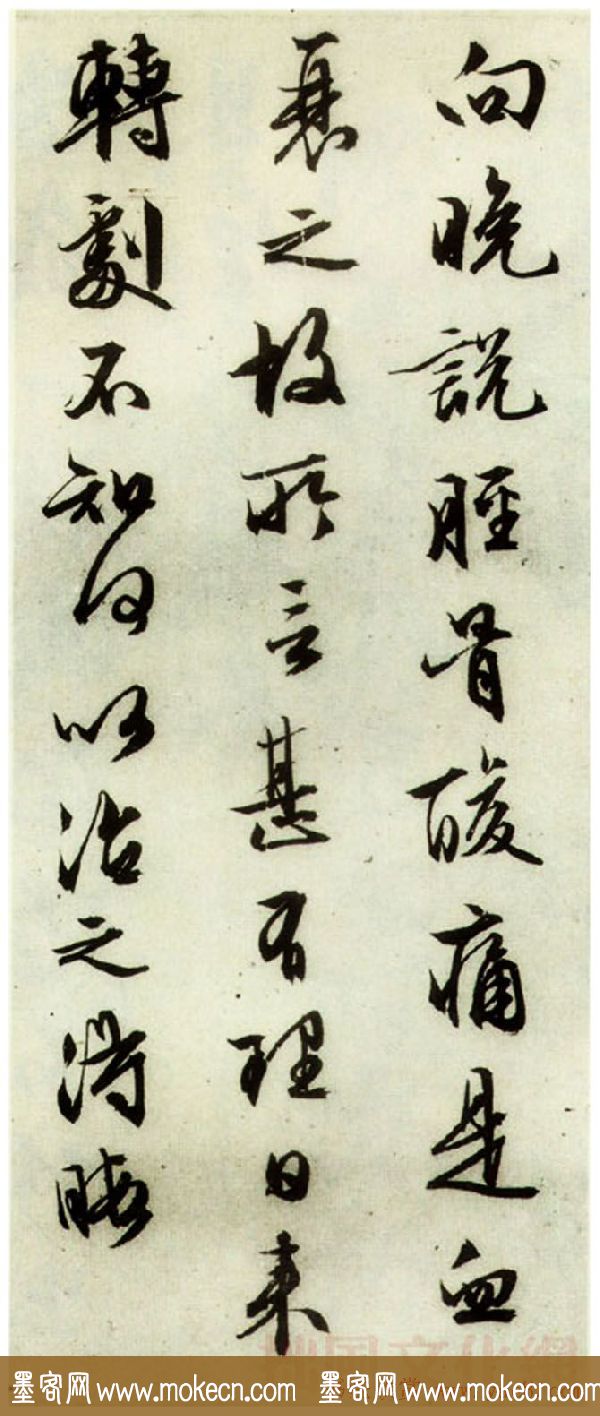 向晚説脛骨酸痛是血
衰之故所言甚有理日来
轉劇不知何以治之得晤
墨客网 www.mokecn.com 墨客网 www.mokecn.com